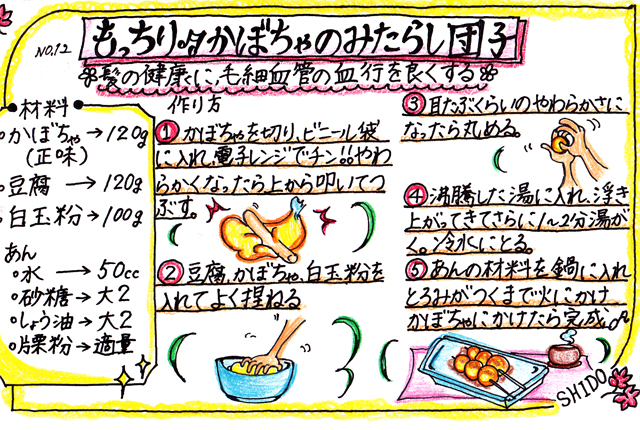 NO,12
もっちり♪かぼちゃのみたらし団子
髪の健康に、毛細血管の血行を良くする
材料
かぼちゃ→120g
(正味)
豆腐→120g
白玉粉→100g
あん
水→50cc
砂糖→大2
しょう油→大2
片栗粉→適量
作り方
① かぼちゃを切り、ビニール袋
に入れ、電子レンジでチン。やわ
らかくなったら上から叩いてつ
ぶす。
② 豆腐、かぼちゃ、白玉粉を
入れてよく捏ねる
③ 耳たぶくらいのやわらかさに
なったら丸める。
④ 沸騰した湯に入れ、浮き
上がってきてさらに1〜2分湯が
く。冷水にとる。
⑤ あんの材料を鍋に入れ
とろみがつくまで火にかけ
かぼちゃにかけたら完成♪
SHIDO